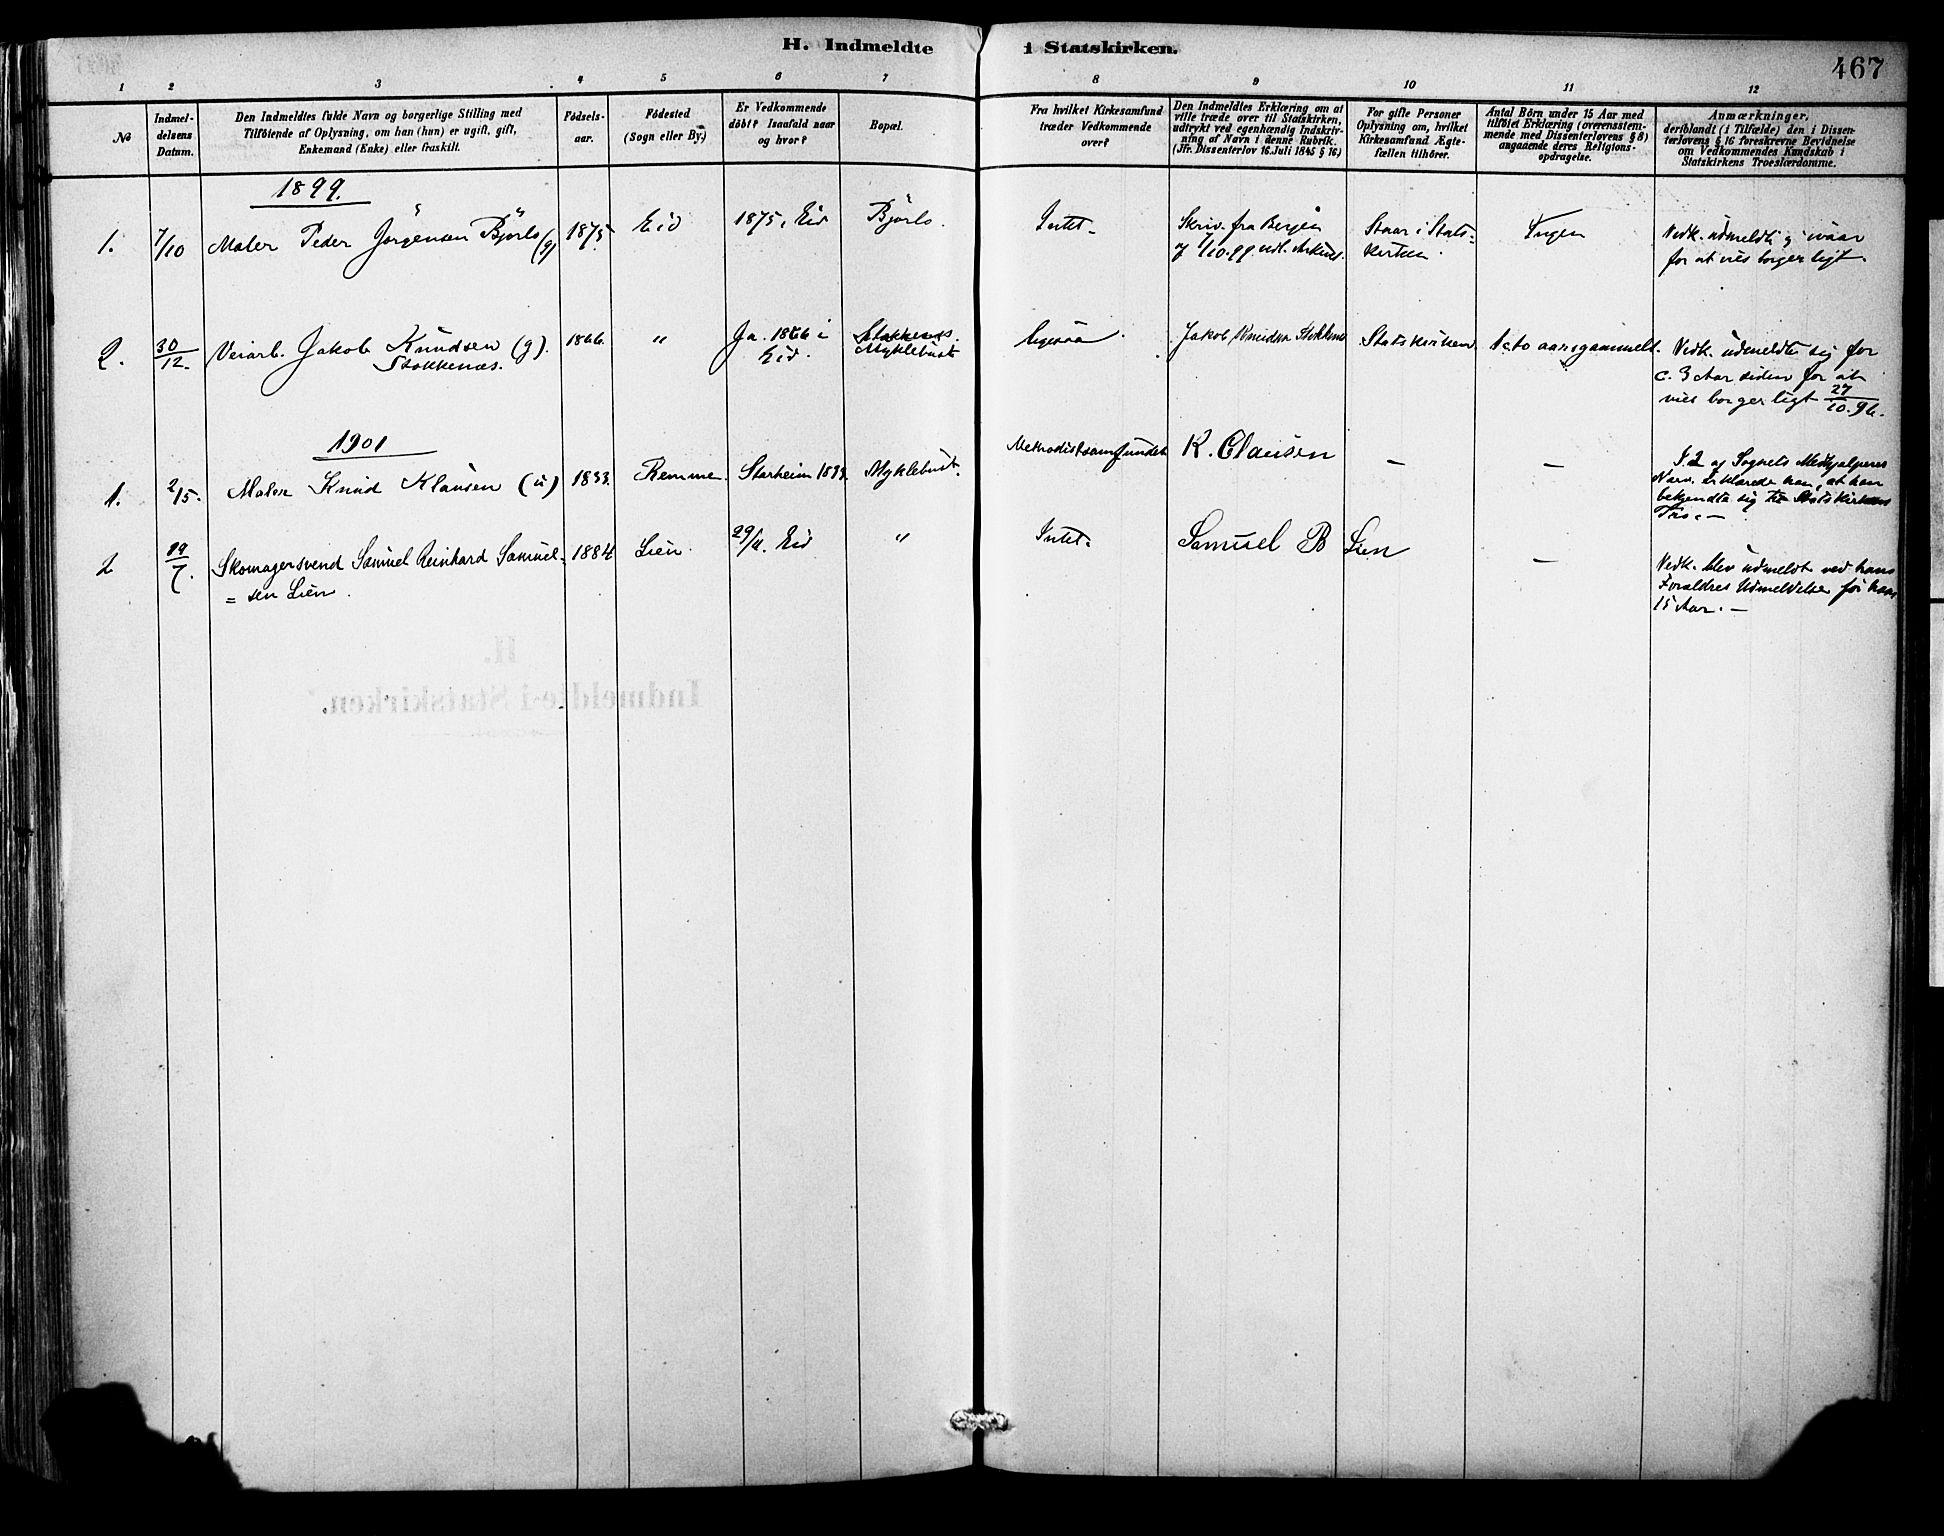 H. Indmeldte i Statskirken.
467
1 2 3 4 5 6 7 8 9 10 11 12
No
Indmel-
delsens
Datum.
Den Indmeldtes fulde Navn og borgerlige Stilling med
Tilföiende af Oplysning, om han (hun) er ugift, gift,
Enkemand (Enke) eller fraskilt.
Födsels-
aar.
Födested
(Sogn eller By.)
Er Vedkommende
döbt? Isaafald naar
og hvor?
Bopæl.
Fra hvilket Kirkesamfund
træder Vedkommende
over?
Den Indmeldtes Erklæring om at
ville træde over til Statskirken,
udtrykt ved egenhændig Indskriv-
ning af Navn i denne Rubrik.
(Jfr. Dissenterlov 16. Juli 1845 § 16.)
For gifte Personer
Oplysning om, hvilket
Kirkesamfund Ægte-
fællen tilhörer.
Antal Börn under 15 Aar med
tilföiet Erklæring (overensstem-
mende med Dissenterlovens § 8)
angaaende deres Religions-
opdragelse.
Anmærkninger,
deriblandt (i Tilfælde) den i Dissen-
terlovens § 16 foreskrevne Bevidnelse
om Vedkommendes Kundskab i
Statskirkens Troeslærdomme.
1899.
1. 7/10 Maler Peder Jörgensen Björlo (g) 1875 Eid 1875, Eid Björlo.
Intet.
Skriv. fra Bergen
af 1/10.99
Staar i Stats-
kirken.
Ingen
Vedk. udmeldt
for at vies borgerligt.
2. 30/12. Veiarb. Jakob Knudsen (g).
Stokkenæs.
1866. "
Ja. 1866 i
Eid.
Stokkenæs.
Myklebust
ligesaa
Jakob Knudsen Stokkenes
Statskirken
1 et to aarsgammelt.
Vedk. udmeldte sig for
c. 3 Aar siden for at
vies borgerligt 27/10.96.
1901
1. 2/5. Maler Knud Klausen (u) 1833. Remme. Starheim 1833. Myklebust.
Methodistsamfundet K. Clausen — —
I. 2 af Sognets Medhjælperes
Nærv. erklærede han, at han
bekjendte sig til Statskirkens
Tro. —
2 19/7. Skomagersvend Samuel Reinhard Samuel-
= sen Lien.
1884 Lien. 29/11. Eid "
Intet. Samuel B Lien —
Vedk. blev udmeldt ved hans
Forældres Udmeldelse för hans
15 Aar. —
H.
Indmeldte i Statskirken.